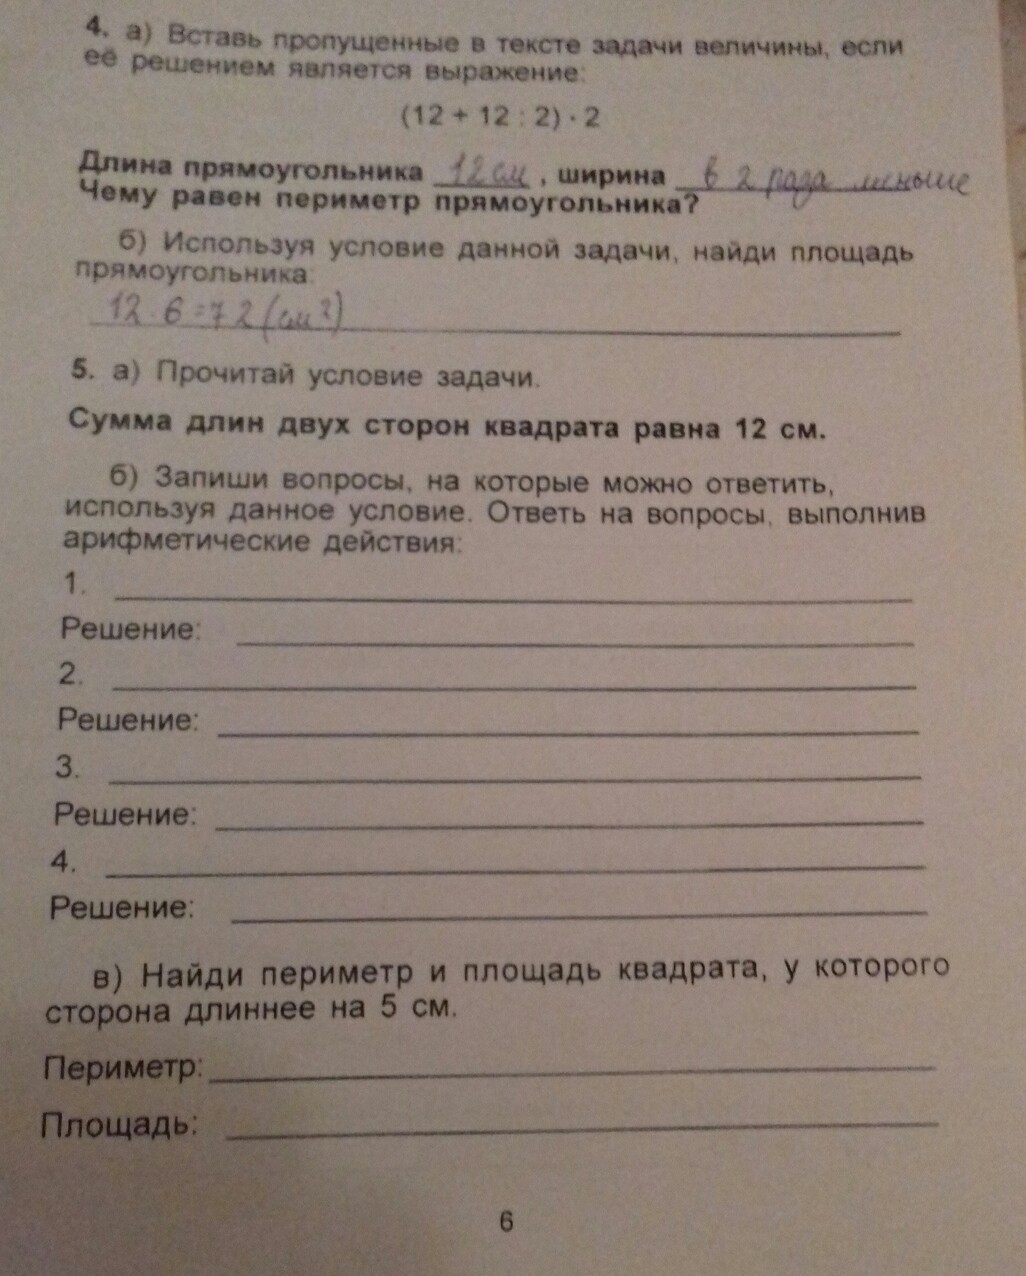 4. а) Вставь пропущенные в тексте задачи величины, если
её решением является выражение:
(12 + 12 : 2) · 2
Длина прямоугольника 12 см, ширина в 2 раза меньше
Чему равен периметр прямоугольника?
б) Используя условие данной задачи, найди площадь
прямоугольника:
12·6=72(см²)
5. а) Прочитай условие задачи.
Сумма длин двух сторон квадрата равна 12 см.
б) Запиши вопросы, на которые можно ответить,
используя данное условие. Ответь на вопросы, выполнив
арифметические действия:
1.
Решение:
2.
Решение:
3.
Решение:
4.
Решение:
в) Найди периметр и площадь квадрата, у которого
сторона длиннее на 5 см.
Периметр:
Площадь:
6